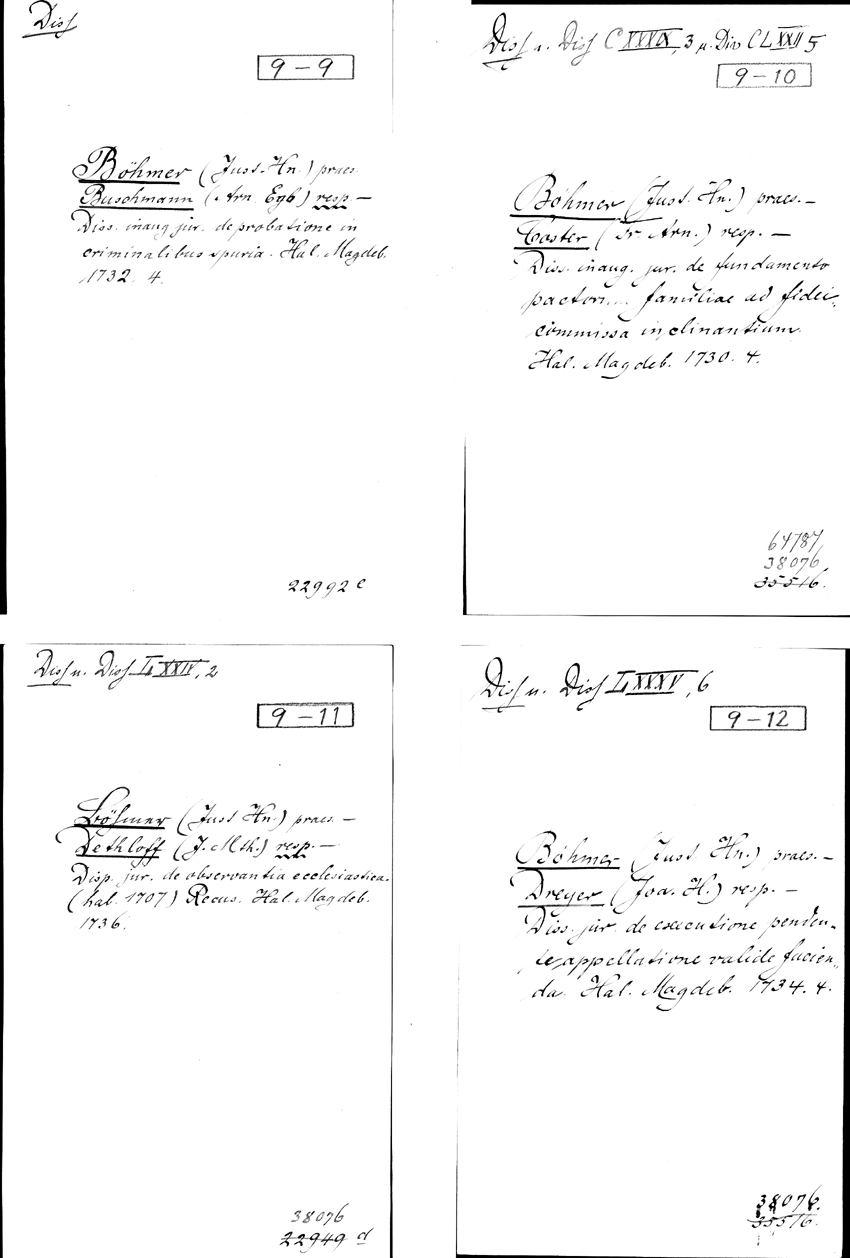 Diss
9-9
Böhmer (Just. Hn.) praes.
Buschmann (Arn. Egb) resp. —
Diss. inaug jur. de probatione in
criminalibus spuria. Hal. Magdeb.
1732. 4.
22992 c
Diss u. Diss CXXXIX, 3 u. Diss CLXXII 5
9-10
Böhmer (Just. Hn.) praes. —
Coster ( Arn.) resp. —
Diss. inaug. jur. de fundamento
familiae ad fidei-
commissa inclinantium
Hal. Magdeb. 1730. 4.
64787,
38076
35516.
Diss u. Diss LXXIV, 2
9-11
Böhmer (Just Hn.) praes. —
Dethloff (J. Mth.) resp. —
Disp. jur. de observantia ecclesiastica.
(hab. 1707) Recus. Hal. Magdeb.
1736.
38076
22949 d
Diss u. Diss LXXXV, 6
9-12
Böhmer (Just Hn.) praes. —
Dreyer (Joa. H.) resp. —
Diss. jur. de executione penden-
te appellatione valide facien-
da. Hal. Magdeb. 1734. 4.
38076.
35516.